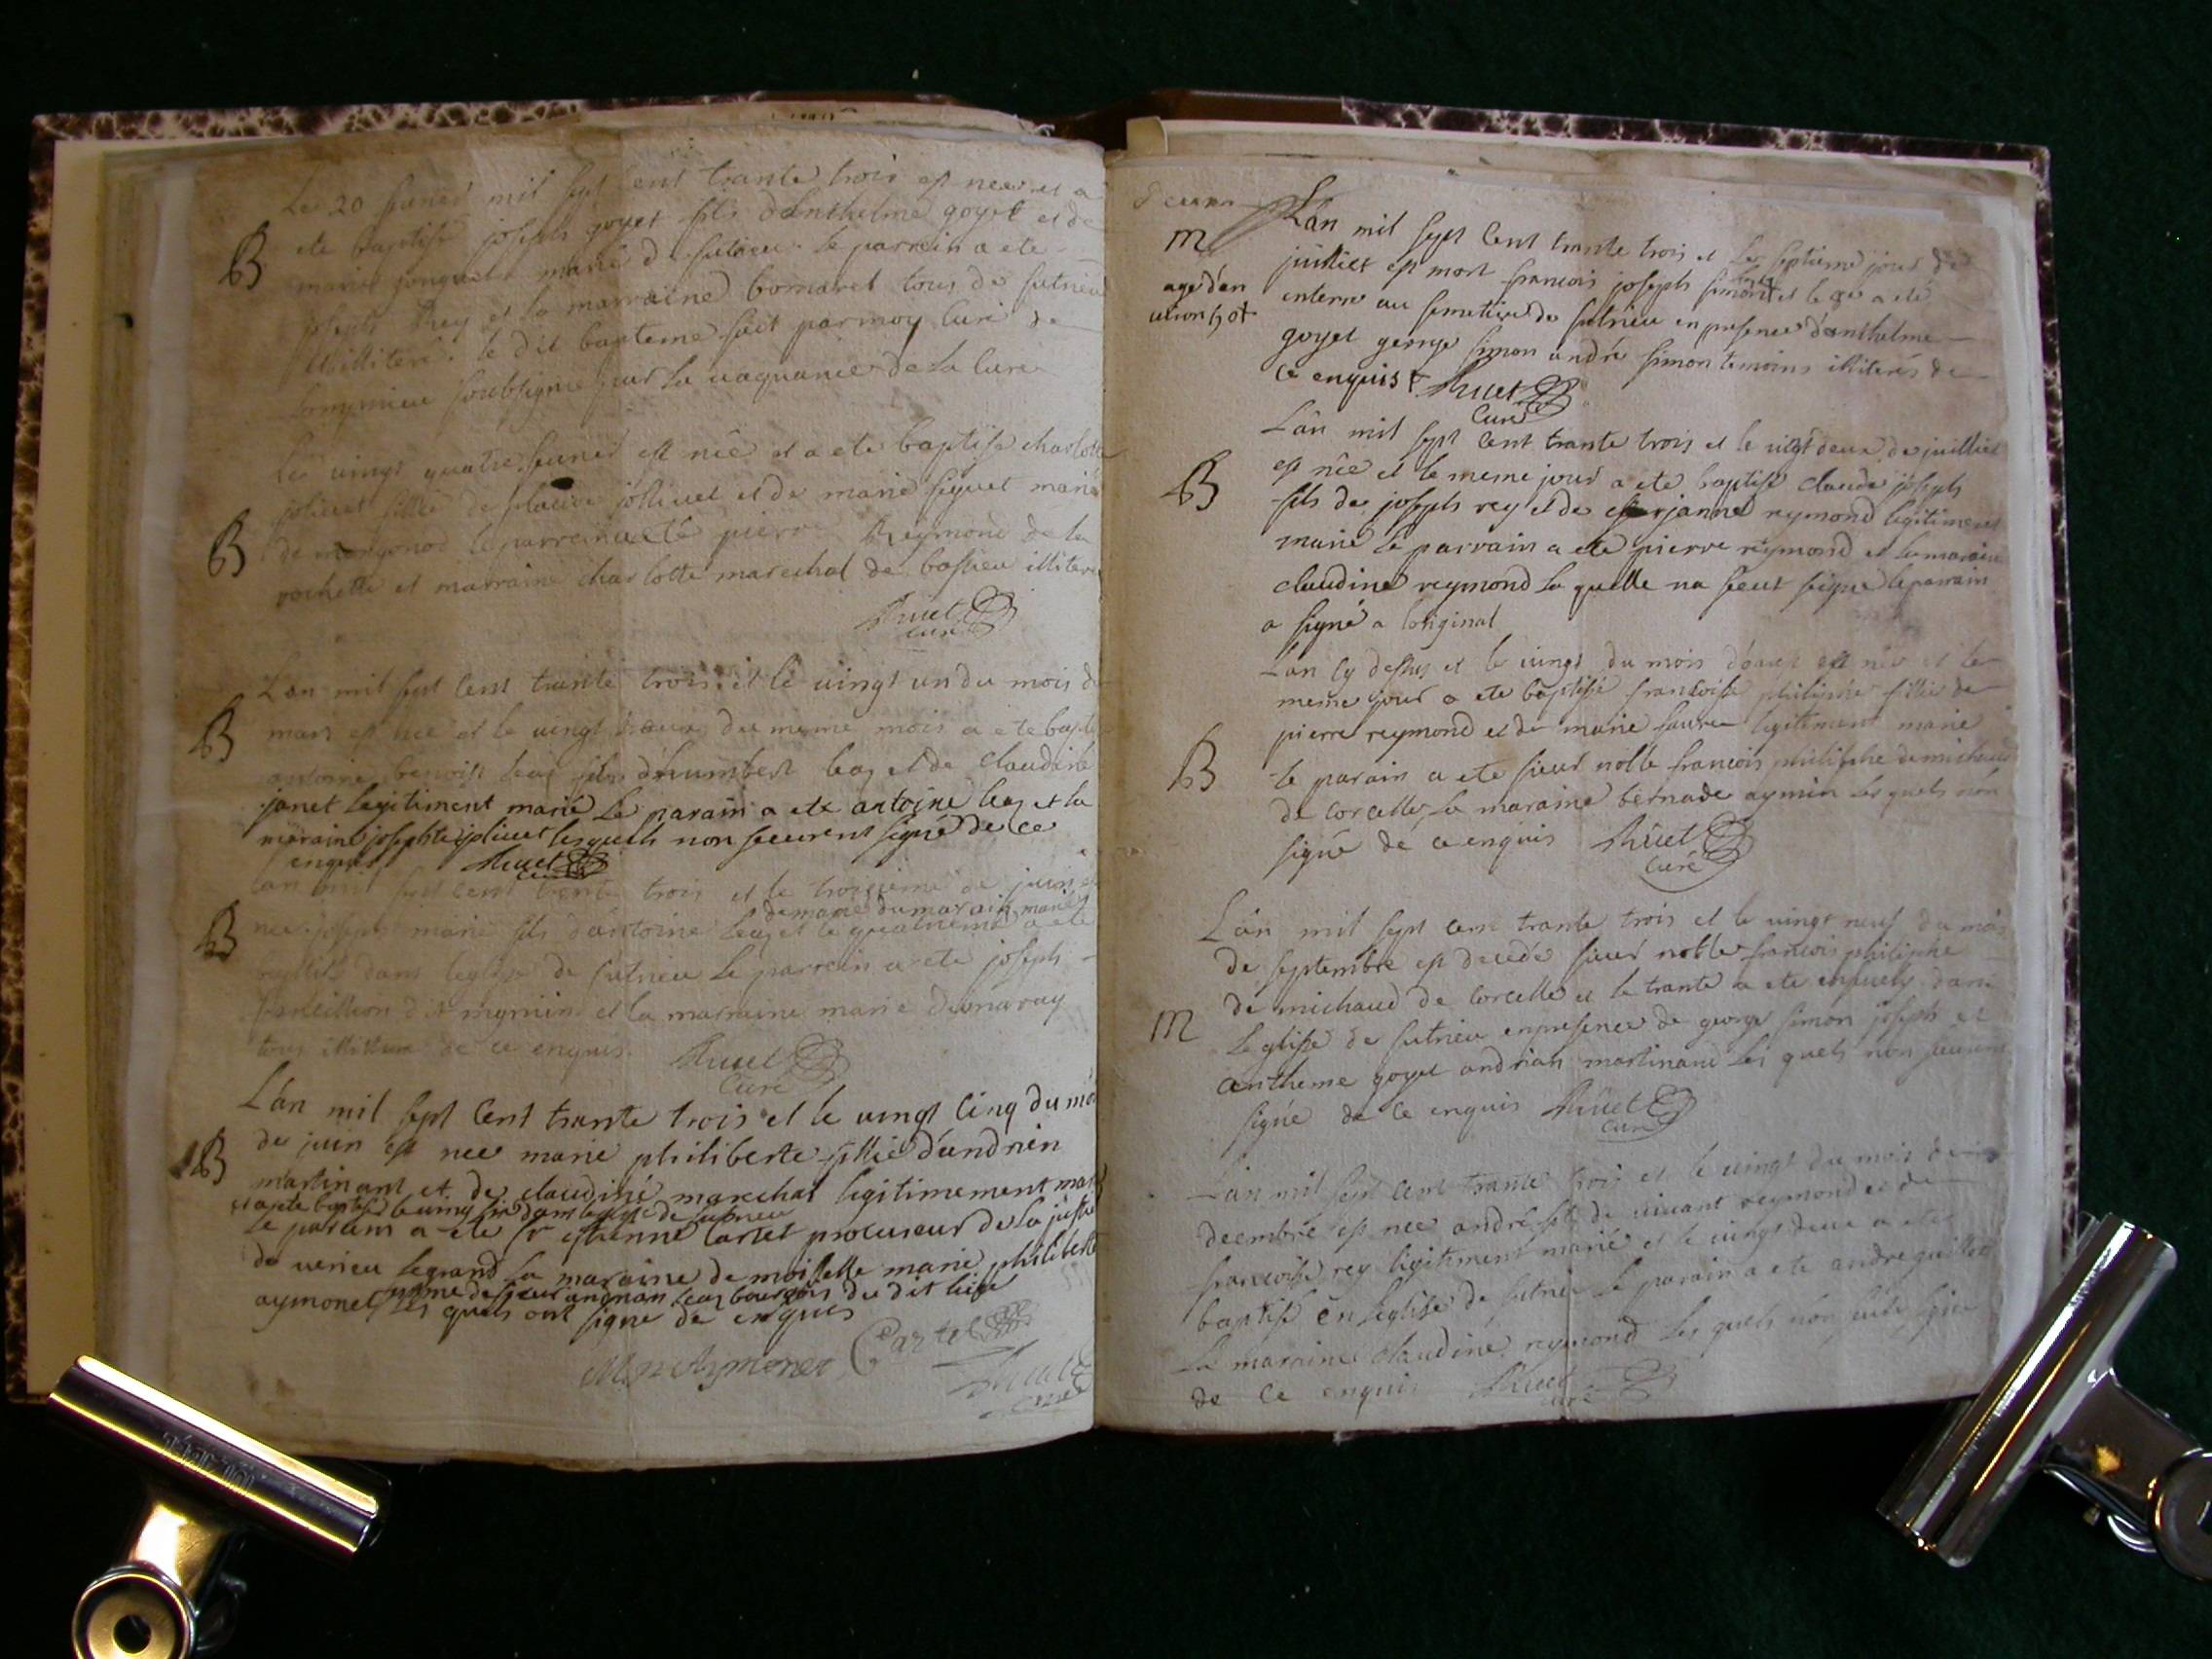 Le 20 feurier mil sept cent trante trois est nee et a
B
ete baptisé joseph goyet fils danthelme goyet et de
marie jonquet marié de sutrieu le parrain a ete
joseph Rey et la marraine bomaret tous de sutrieu
illiteré. le dit bapteme fait par moy Curé de
soubsigné pour la uaquance de la Cure
Le uingt quatre feurier est née et a ete baptisé charlotte
joliuet fillie de placide jolliuet et de marie siguet marié
B
de le parrein a eté pierre Reymond de la
rochette et marraine charlotte marechal de bassieu illiteré
Ruet
curé
L'an mil sept cent trante trois et le uingt un du mois de
B
mars est nee et le uingt du meme mois a ete bapti
antoine benoist leaz fils d'humbert leaz et de Claudine
janet legitiment marié Le parain a ete antoine leaz et la
maraine josephte joliuet lesquels non seeurent signé de ce
enquis Ruet
Curé
L'an mil sept cent trente trois et le troisieme de juin est
de marie dumarais marié
B
nee joseph marie fils d'antoine leaz et le quatrieme a ete
baptisé dans leglise de sutrieu le parrein a ete joseph
dit mymin et la marraine marie
tous illiteré de ce enquis. Ruet
Curé
L'an mil sept Cent trante trois et le uingt Cinq du moi
de juin est nee marie philiberte fillie d'andrien
B
martinant et de claudine marechal legitimement marié
et a ete baptisé le uingt six dans leglise de sutrieu
Le parain a ete sr estienne Cartet procureur de la justice
de uerieu legrand La maraine demoiselle marie philiberte
femme de sieur leaz bourgois du dit lieu
aymonet Les quels ont signé de enquis
M p Aymonet Cartet
Ruet
Curé
L'an mil sept Cent trante trois et Le septieme jour de
M
juillet est mort francois joseph simon et le a eté
agé d'en
enterre au semetiere de sutrieu en presence d'anthelme
goyet george simon andré simon temoins illiterés de
ce enquis Ruet
Curé
L'an mil sept cent trante trois et le uigt deux de juilliet
est née et le meme jour a ete baptisé claude joseph
B
fils de joseph rey et de janne reymond legitiment
marié le parrain a ete pierre reymond et la maraine
claudine reymond la quelle na seeut signé le parrain
a signé a loriginal
L'an cy dessus et le uingt du mois d'oaut est née et le
meme jour a ete baptisé francoise philiphe fillie de
pierre reymond et de marie faure legitiment marié
B
le parain a ete sieur noble francois philiphe de michaud
de corcelle, la maraine bernade aymin les quels non
signé de ce enquis Ruet
Curé
L'an mil sept cent trante trois et le uingt neuf du moi
de septembre est decedé sieur noble francois philiphe
de michaud de corcelle et le trante a ete enseuely dans
M
Leglise de sutrieu en presence de george simon joseph et
antheme goyet andrian martinand les quels non seeurent
signé de ce enquis Ruet
Curé
L'an mil sept cent trante trois et le uingt du mois de
decembre est nee andré fils de uiuant reymond et de
francoise rey ligitiment marié et le uingt deux a ete
baptisé en leglise de sutrieu le parain a ete andre guillot
La marraine Claudine reymond les quels non seeu signé
de ce enquis Ruet
Curé